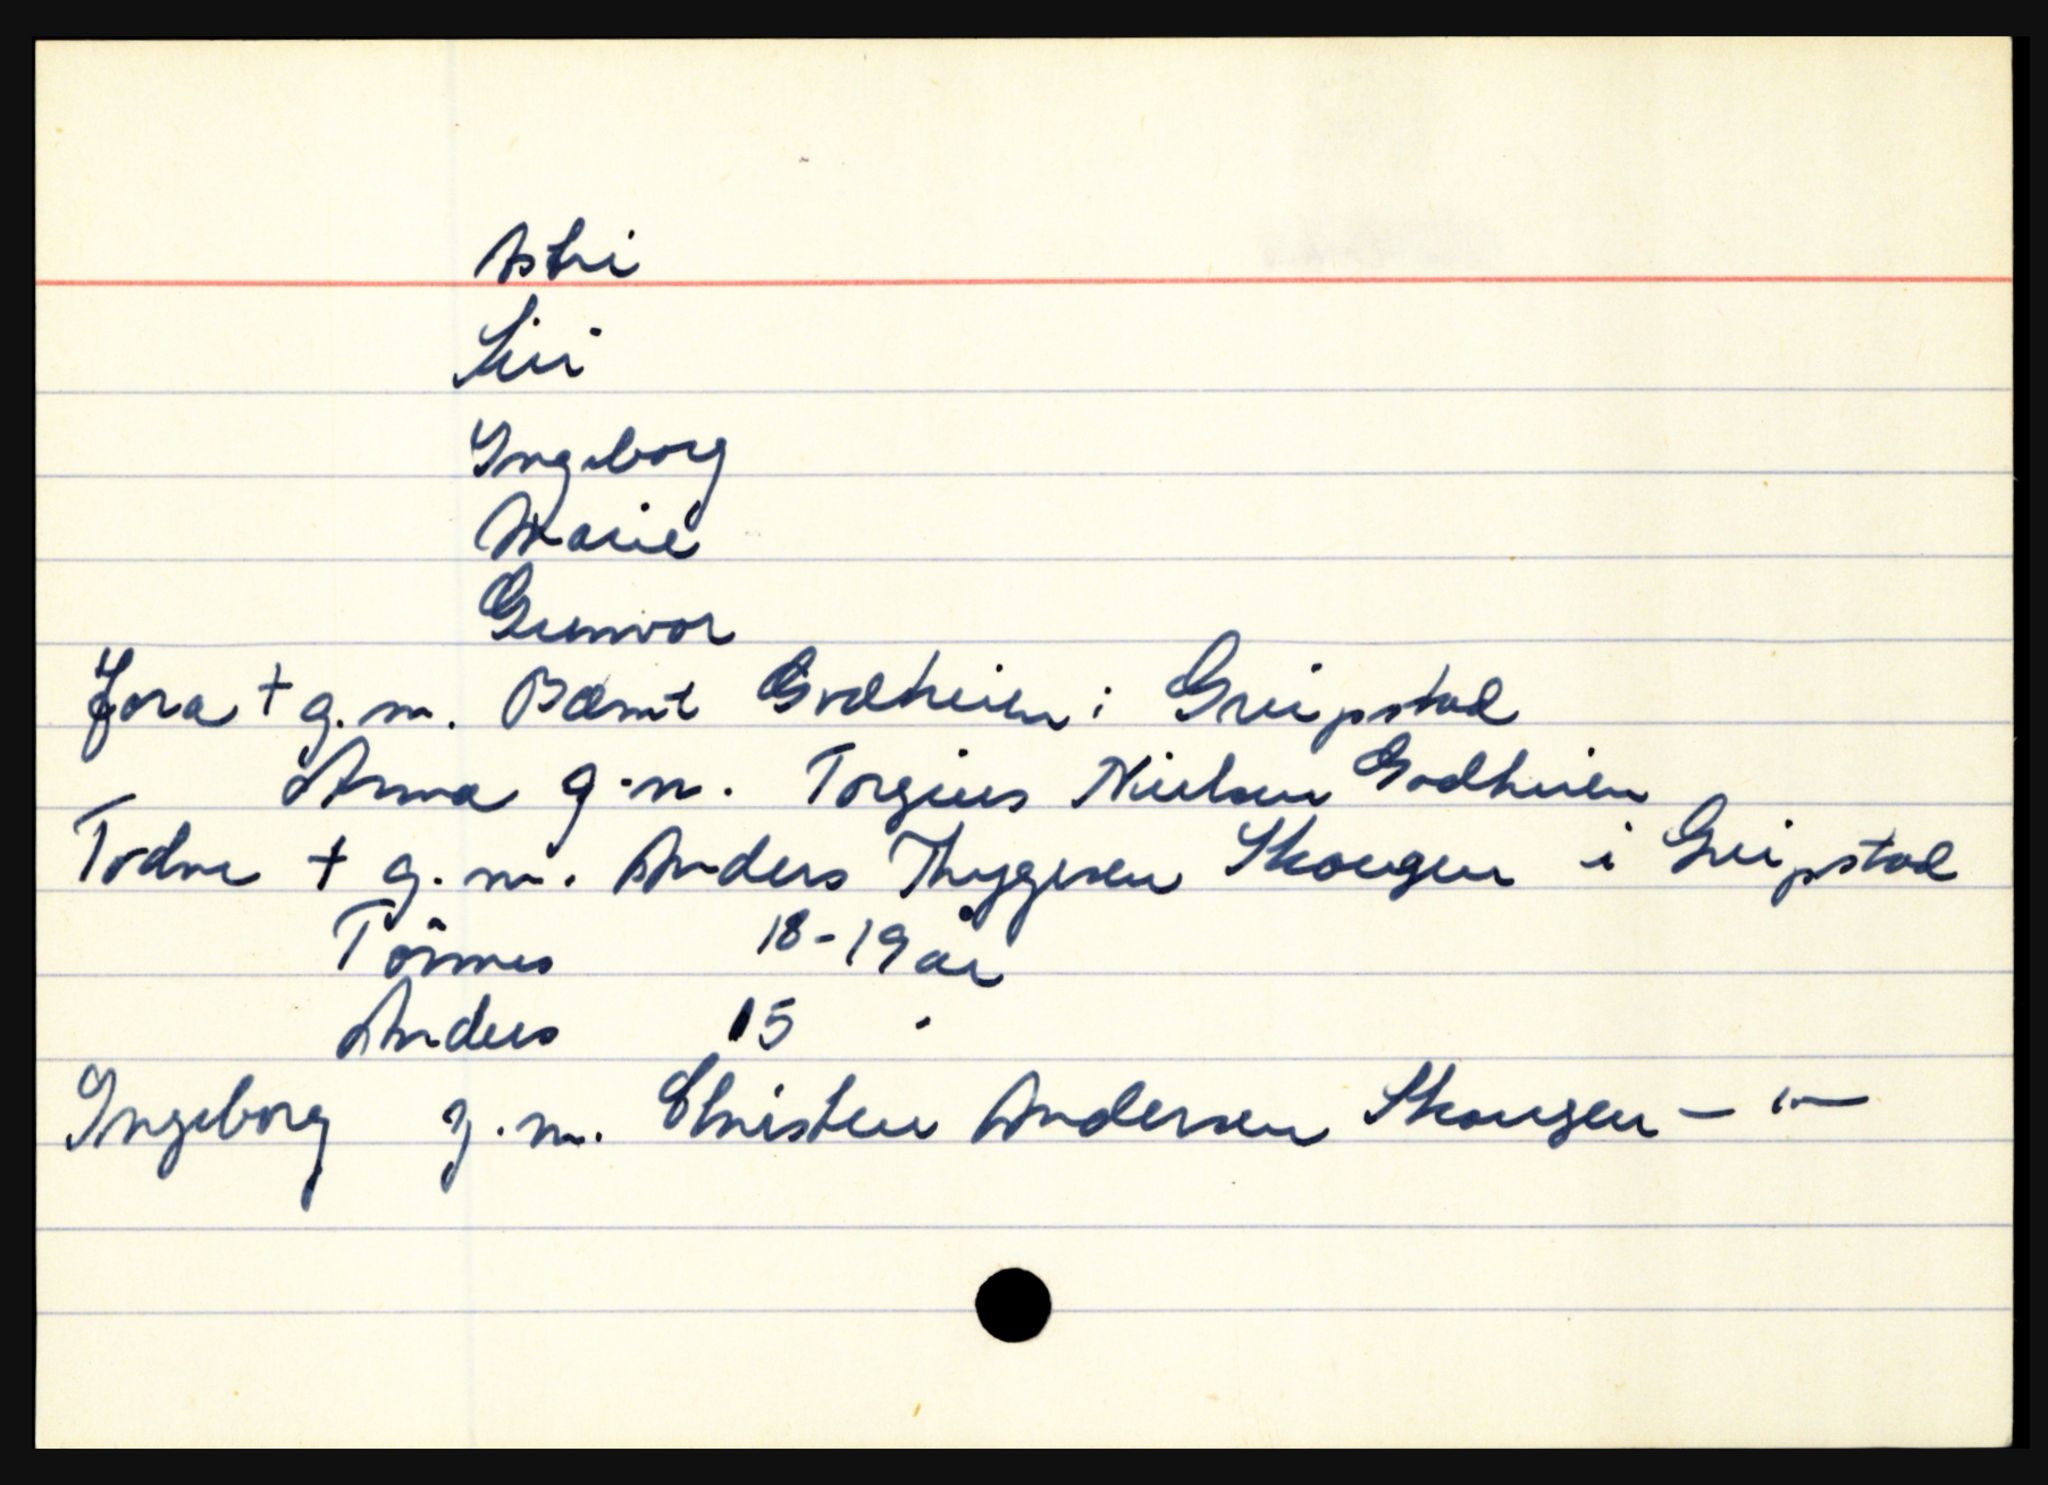 Astri
Siri
Ingeborg
Marie
Gunvor
Jora + g.m. Bernt Godheien i Greipstad
Anna g.m. Torgius Nielsen Godheien
Todne + g.m. Anders Thygesen Skougen i Greipstad
Tönnes 18-19 år
Anders 15 "
Ingeborg g.m. Christen Andersen Skougen - " -